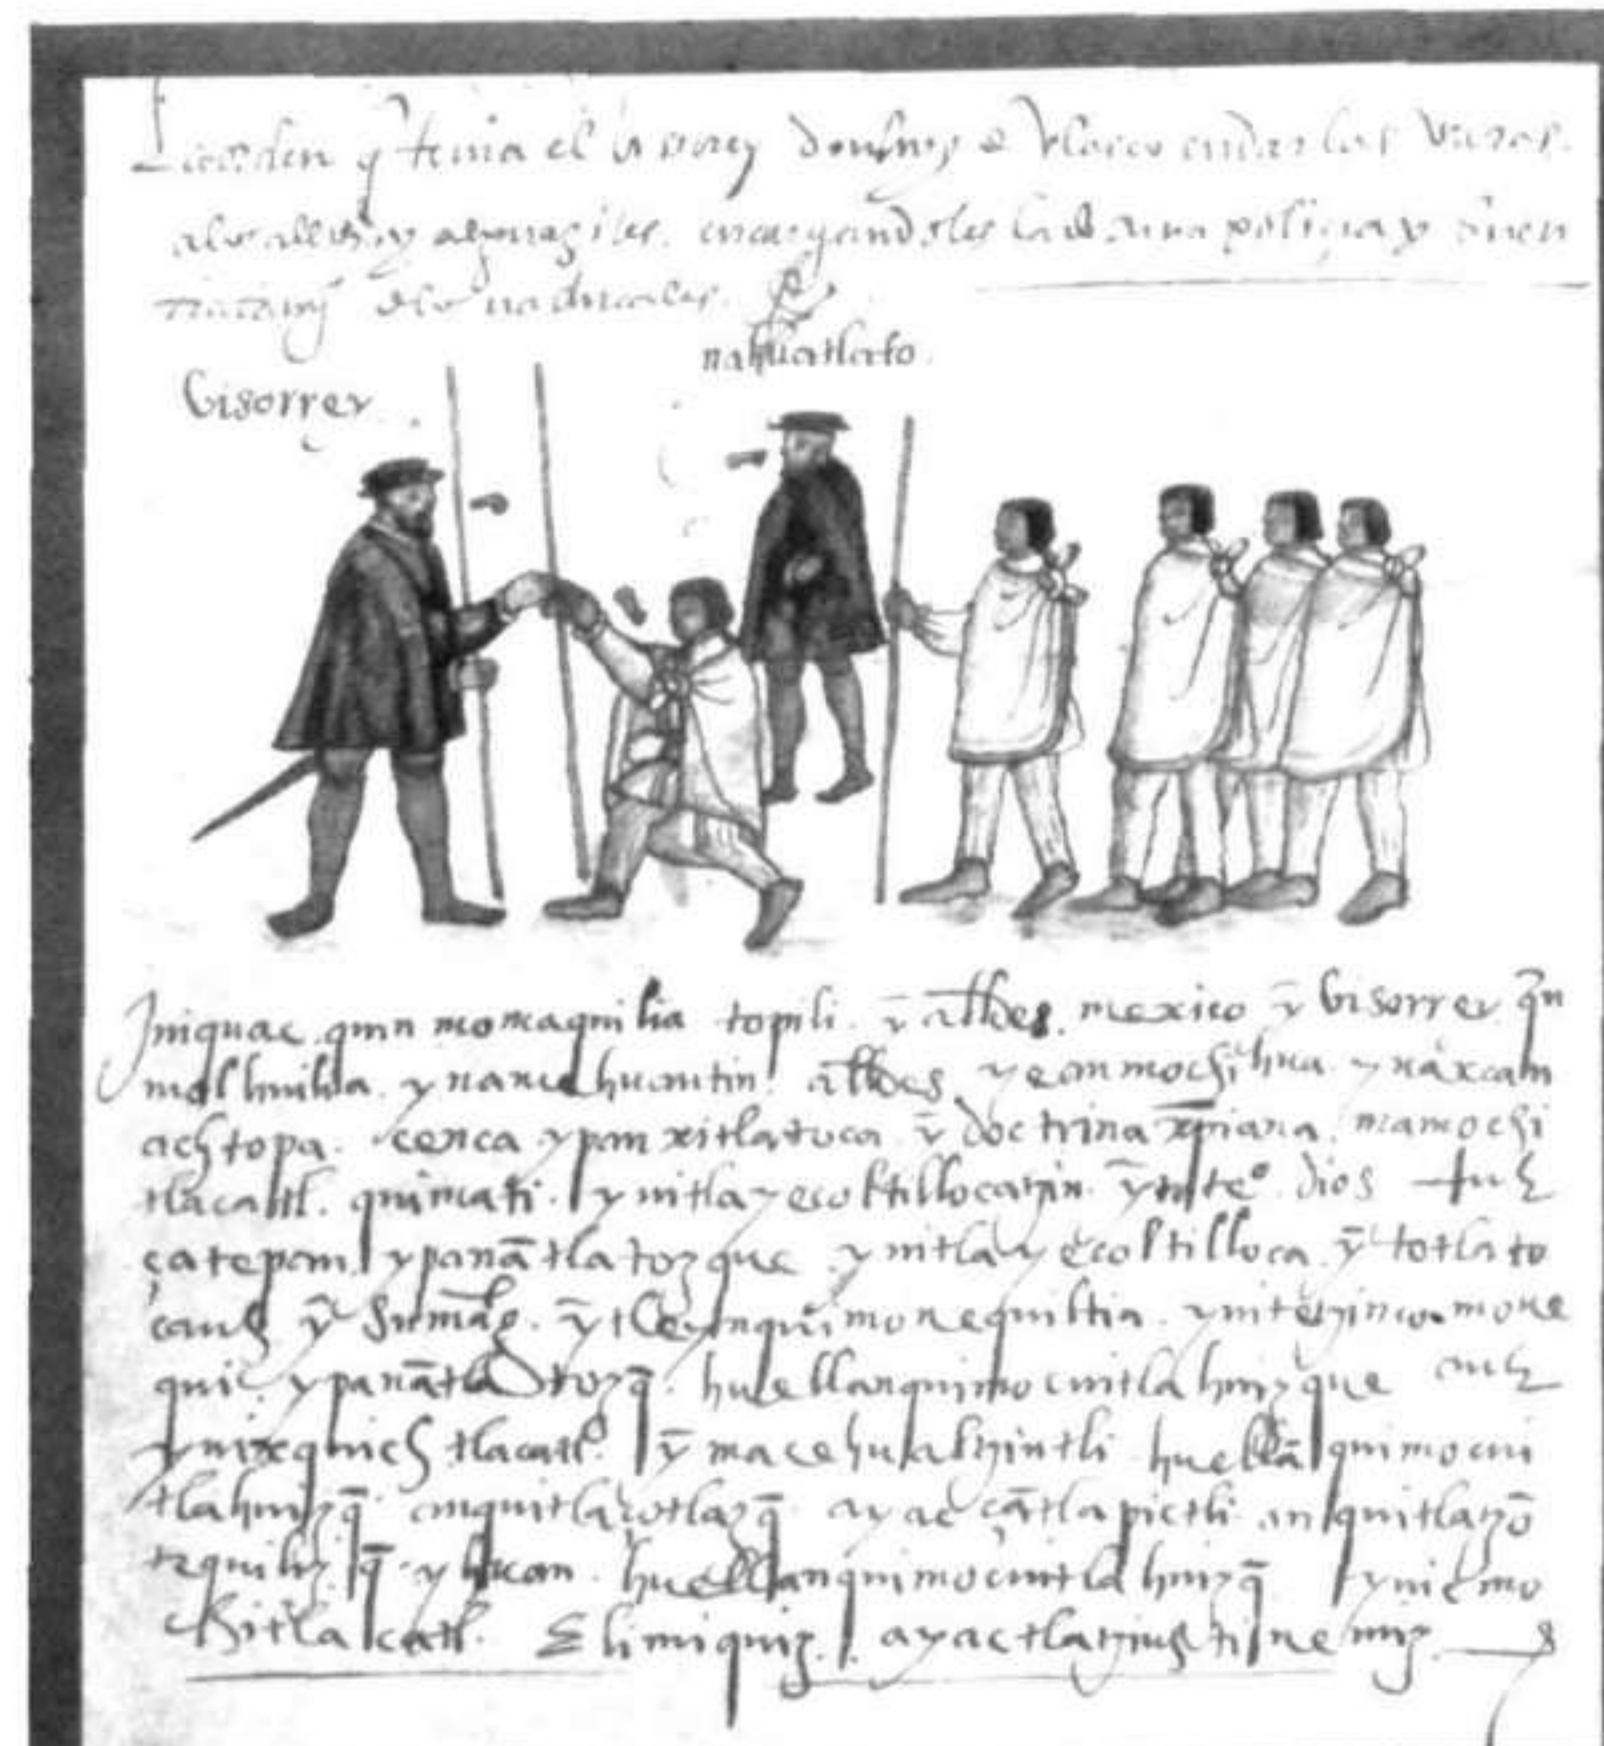 La orden q̄ tenia el bisorrey don luys de Velasco en dar las varas
a los alldes y alguaziles. encargandoles la doctrina polizia y buen
tratamj̄º de los naturales.
nahuatlato.
Bisorrey
Jniquac quin momaquilia topili. ȳ allđes. mexico ȳ bisorrey. q̄n
molhuilia. ynamehuantin allđes. yeanmochihua. ynaxcan
achtopa. cenca ypan xitlatoca ȳ doctrina xp̄iana. mamochi
tlacatl. quimati. ynitlayecoltillocatzin. ȳtoteº. dios auh
çatepan ypanātlatozque ynitlayecoltilloca. ȳ totlato
cauh ȳ Su magđ. ȳtleynquimonequiltia. ynitetzinco mone
qui. ypanātlatozq̄. huellanquimocuitlahuizque auh
ynixquich tlacatl. ȳ macehualtzintli huellā quimocui
tlahuizq̄. anquitlaçotlazq̄. ayac çātlapictli anquitlatzō
tequilizq̄. yhuan. huellanquimocuitlahuizq̄ ynicmo
chitlacatl. Elimiquiz. ayactlatziuhtinemiz.